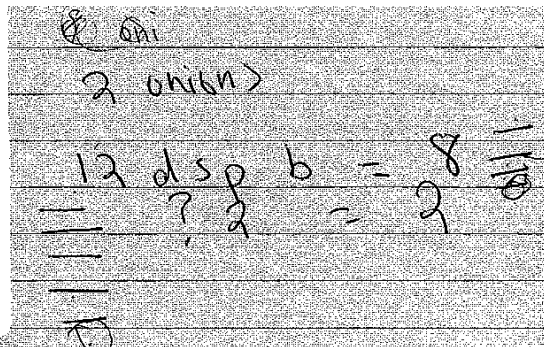 oni
2 onions
12 d s p b = 8
? 2 = 2